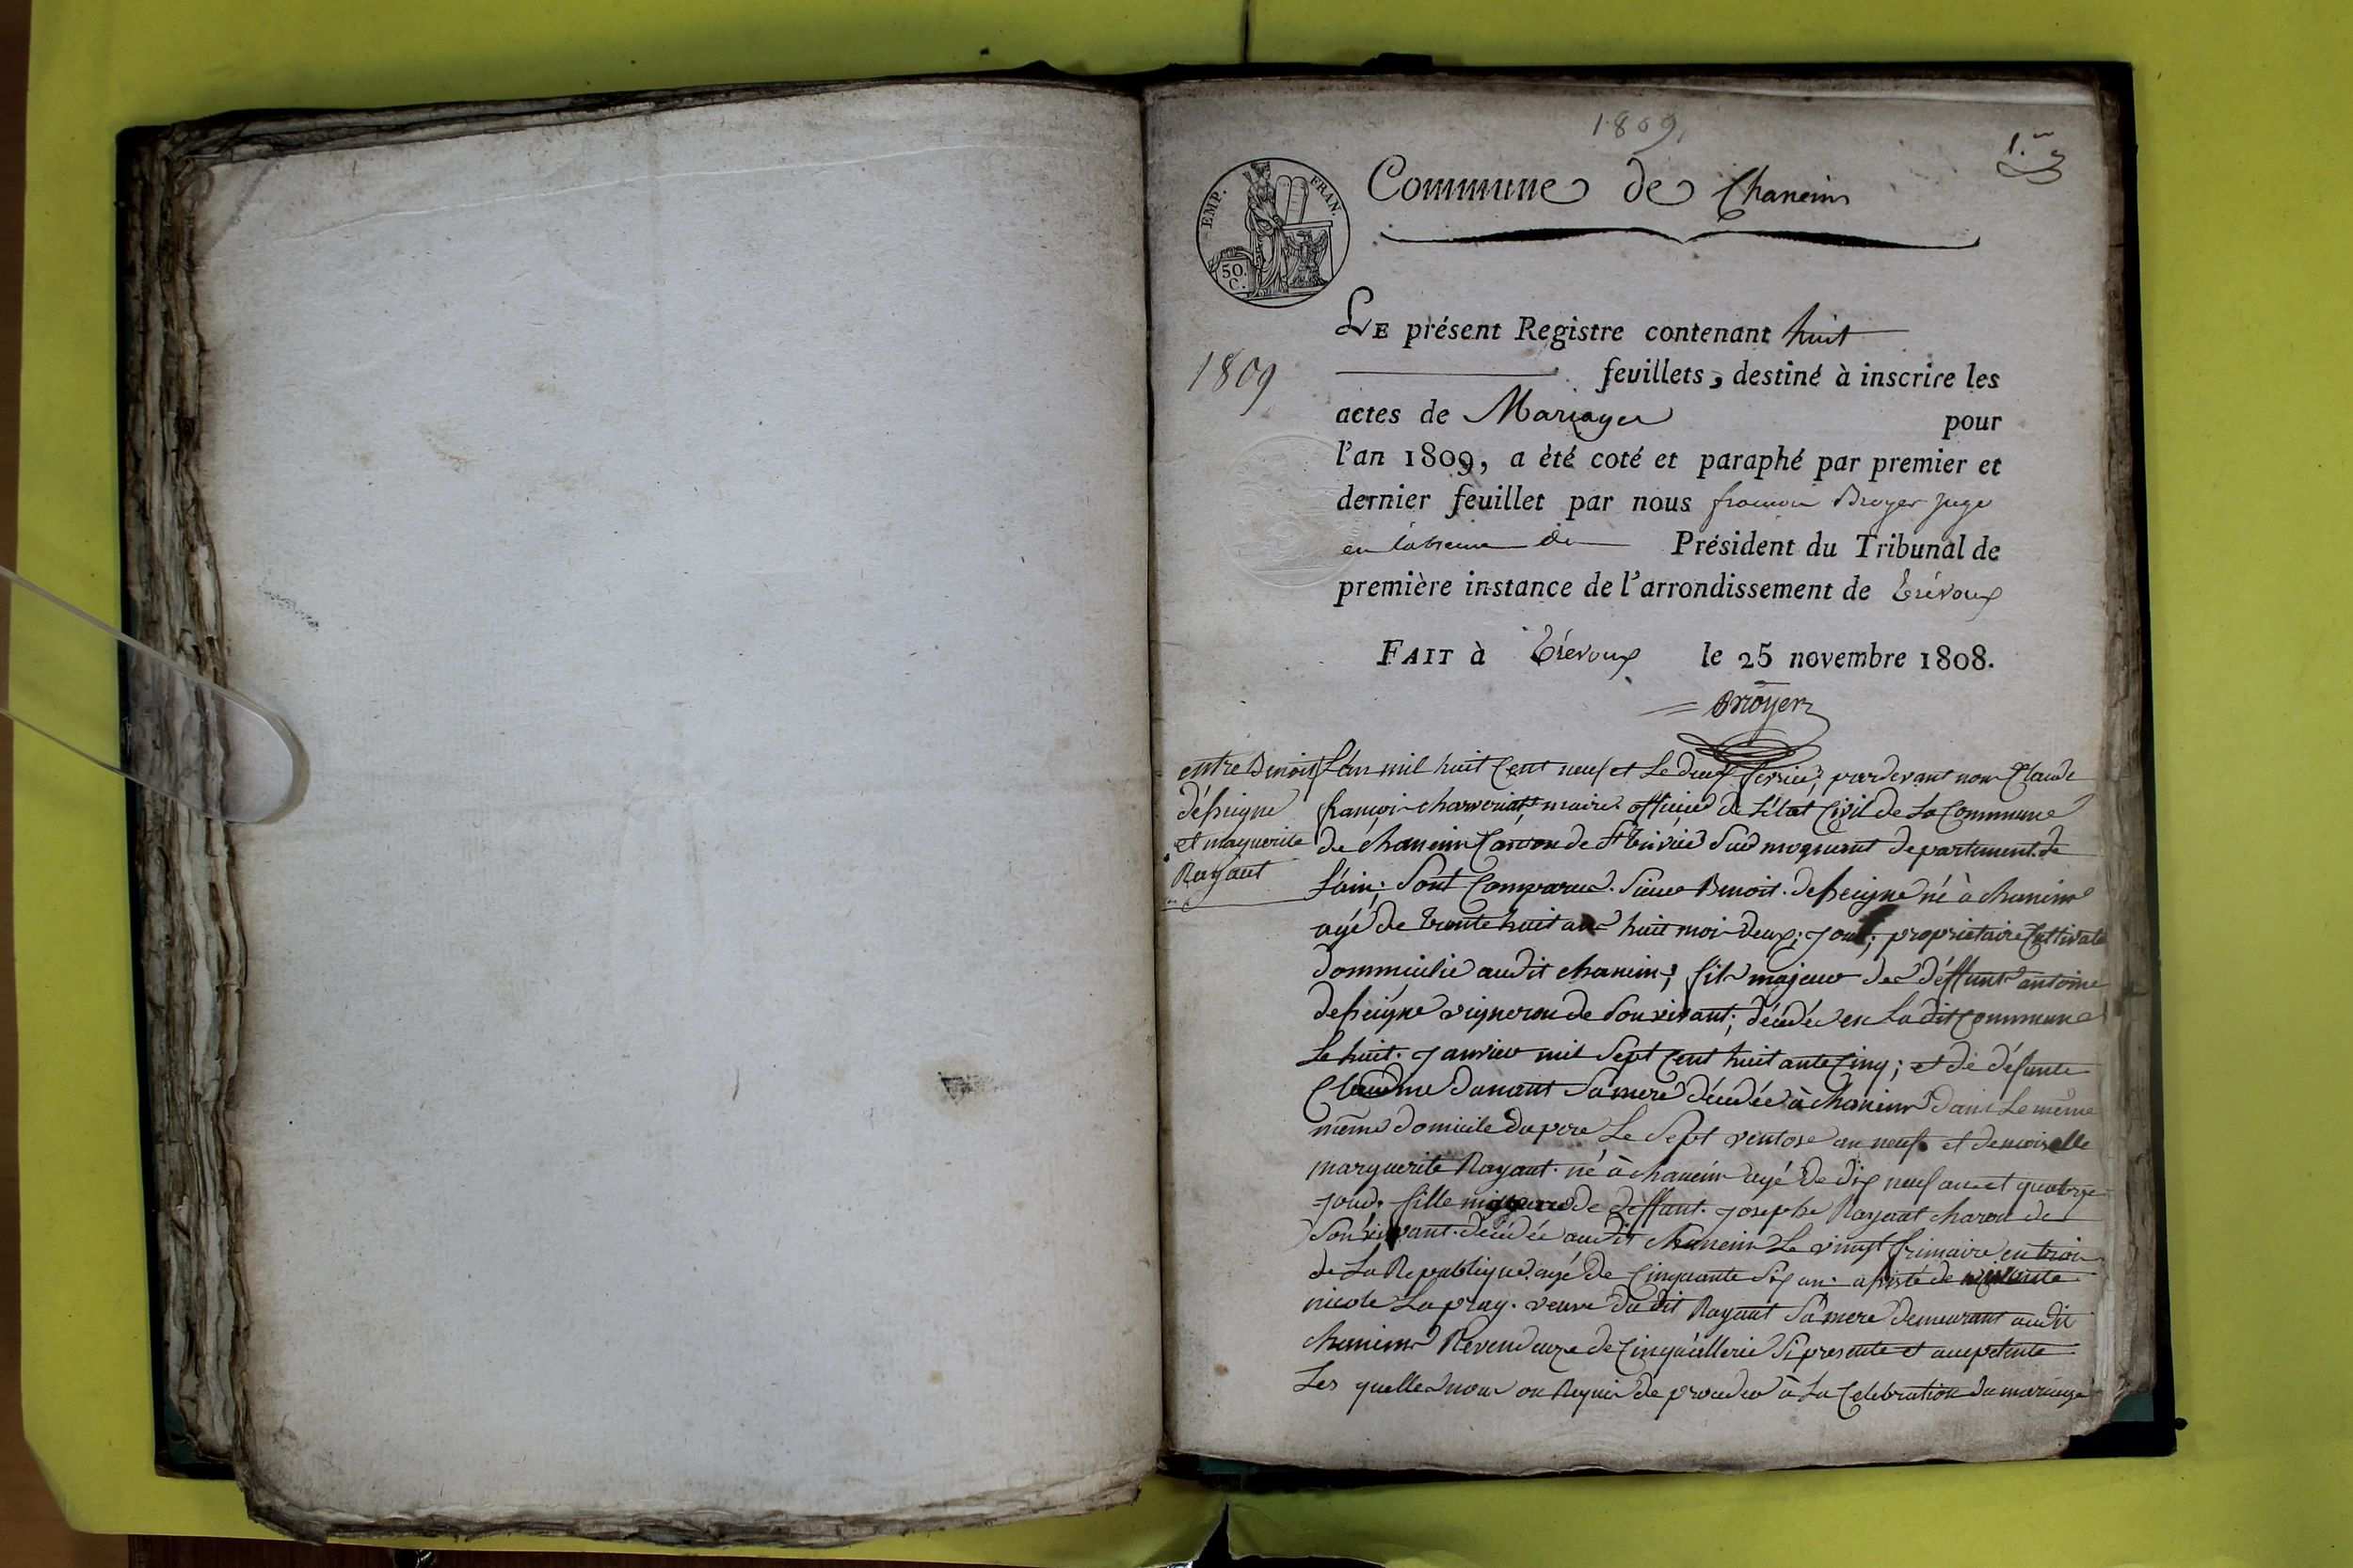 1809
1.er
EMP. FRAN.
50. C.
Commune de Chaneins
LE présent Registre contenant huit
1809
feuillets, destiné à inscrire les
actes de Mariages pour
l'an 1809, a èté coté et paraphé par premier et
dernier feuillet par nous françois Broyer juge
en labsence du Président du Tribunal de
première instance de l'arrondissement de Trévoux
FAIT à Trévoux le 25 novembre 1808.
Broyer
entre Benoit
et marguerite
Rayaut
L'an mil huit Cent neuf et Le deux fevrier, pardevant nous Claude
françois maire officier de L'état Civil de La Commune
de chaneins Canton de St trivier Sur mognant departement de
L'ain; Sont Comparus Sieur Benoit né à chaneins
agé de trente huit ans huit mois deux jours; proprietaire Cultivate
dommicilié audit chaneins; fils majeur des déffunt antoine
vigneron de Son vivant; décédé en La dit Commune
Le huit janvier mil Sept Cent huitante Cinq; et de défunte
Claudine Danant Sa mere décédée à chaneins dans Le même
même domicile du pere Le Sept ventose an neuf et demoiselle
marguerite Rayaut né à chaneins agé de dix neuf ans et quatorze
jours fille de déffunt josephe Rayaut charon de
Son vivant décédé audit chaneins Le vingt frimaire en trois
de La Republique agé de Cinquante Six ans assisté de
nicole Lapray veuve du dit Rayaut Sa mere demeurant audit
chaneins Revendeuze de Cinquaillerie Si presente et
Les quelles nous on Requis de proceder à La Celebration du mariage